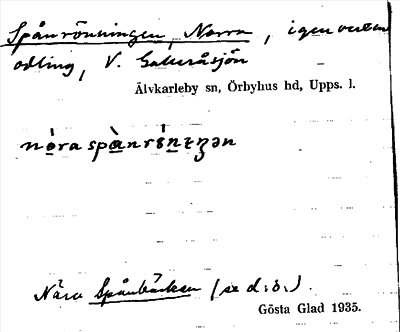 Spånrönningen, Norra, igenvuxen
odling, V. Gateråsjön
Älvkarleby sn, Örbyhus hd, Upps. l.
Nära Spånbäcken (se d:o:).
Gösta Glad 1935.